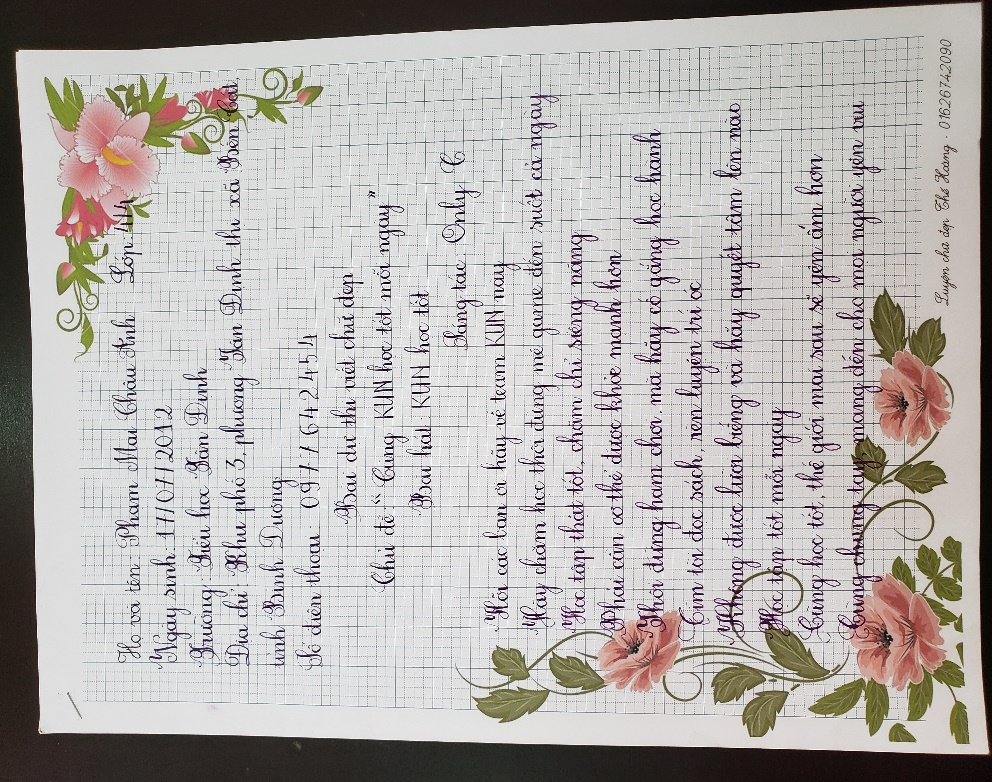 Họ và tên: Phạm Mai Châu Anh Lớp: 4/4
Ngày sinh: 17/07/2012
Trường: Tiểu học Tân Định
Địa chỉ: Khu phố 3, phường Tân Định thị xã Bến Cát,
tỉnh Bình Dương
Số điện thoại: 0977642454
Bài dự thi viết chữ đẹp
Chủ đề "Cùng KUN học tốt mỗi ngày"
Bài hát: KUN học tốt
Sáng tác Only C
Hỡi các bạn ơi hãy về team KUN này
Hãy chăm học thôi đừng mê game đến suốt cả ngày
Học tập thật tốt, chăm chỉ siêng năng
Phải cám cơ thể được khỏe mạnh hơn
Thôi đừng ham chơi mà hãy cố gắng học hành
Tìm tòi đọc sách, rèn luyện trí óc
Không được lười biếng và hãy quyết tâm lên nào
Học tập tốt mỗi ngày
Cùng học tốt, thế giới mai sau sẽ yên ấm hơn
Cùng chung tay, mang đến cho mọi người yên vui
Luyện chữ đẹp Thế Hoàng - 01626742090